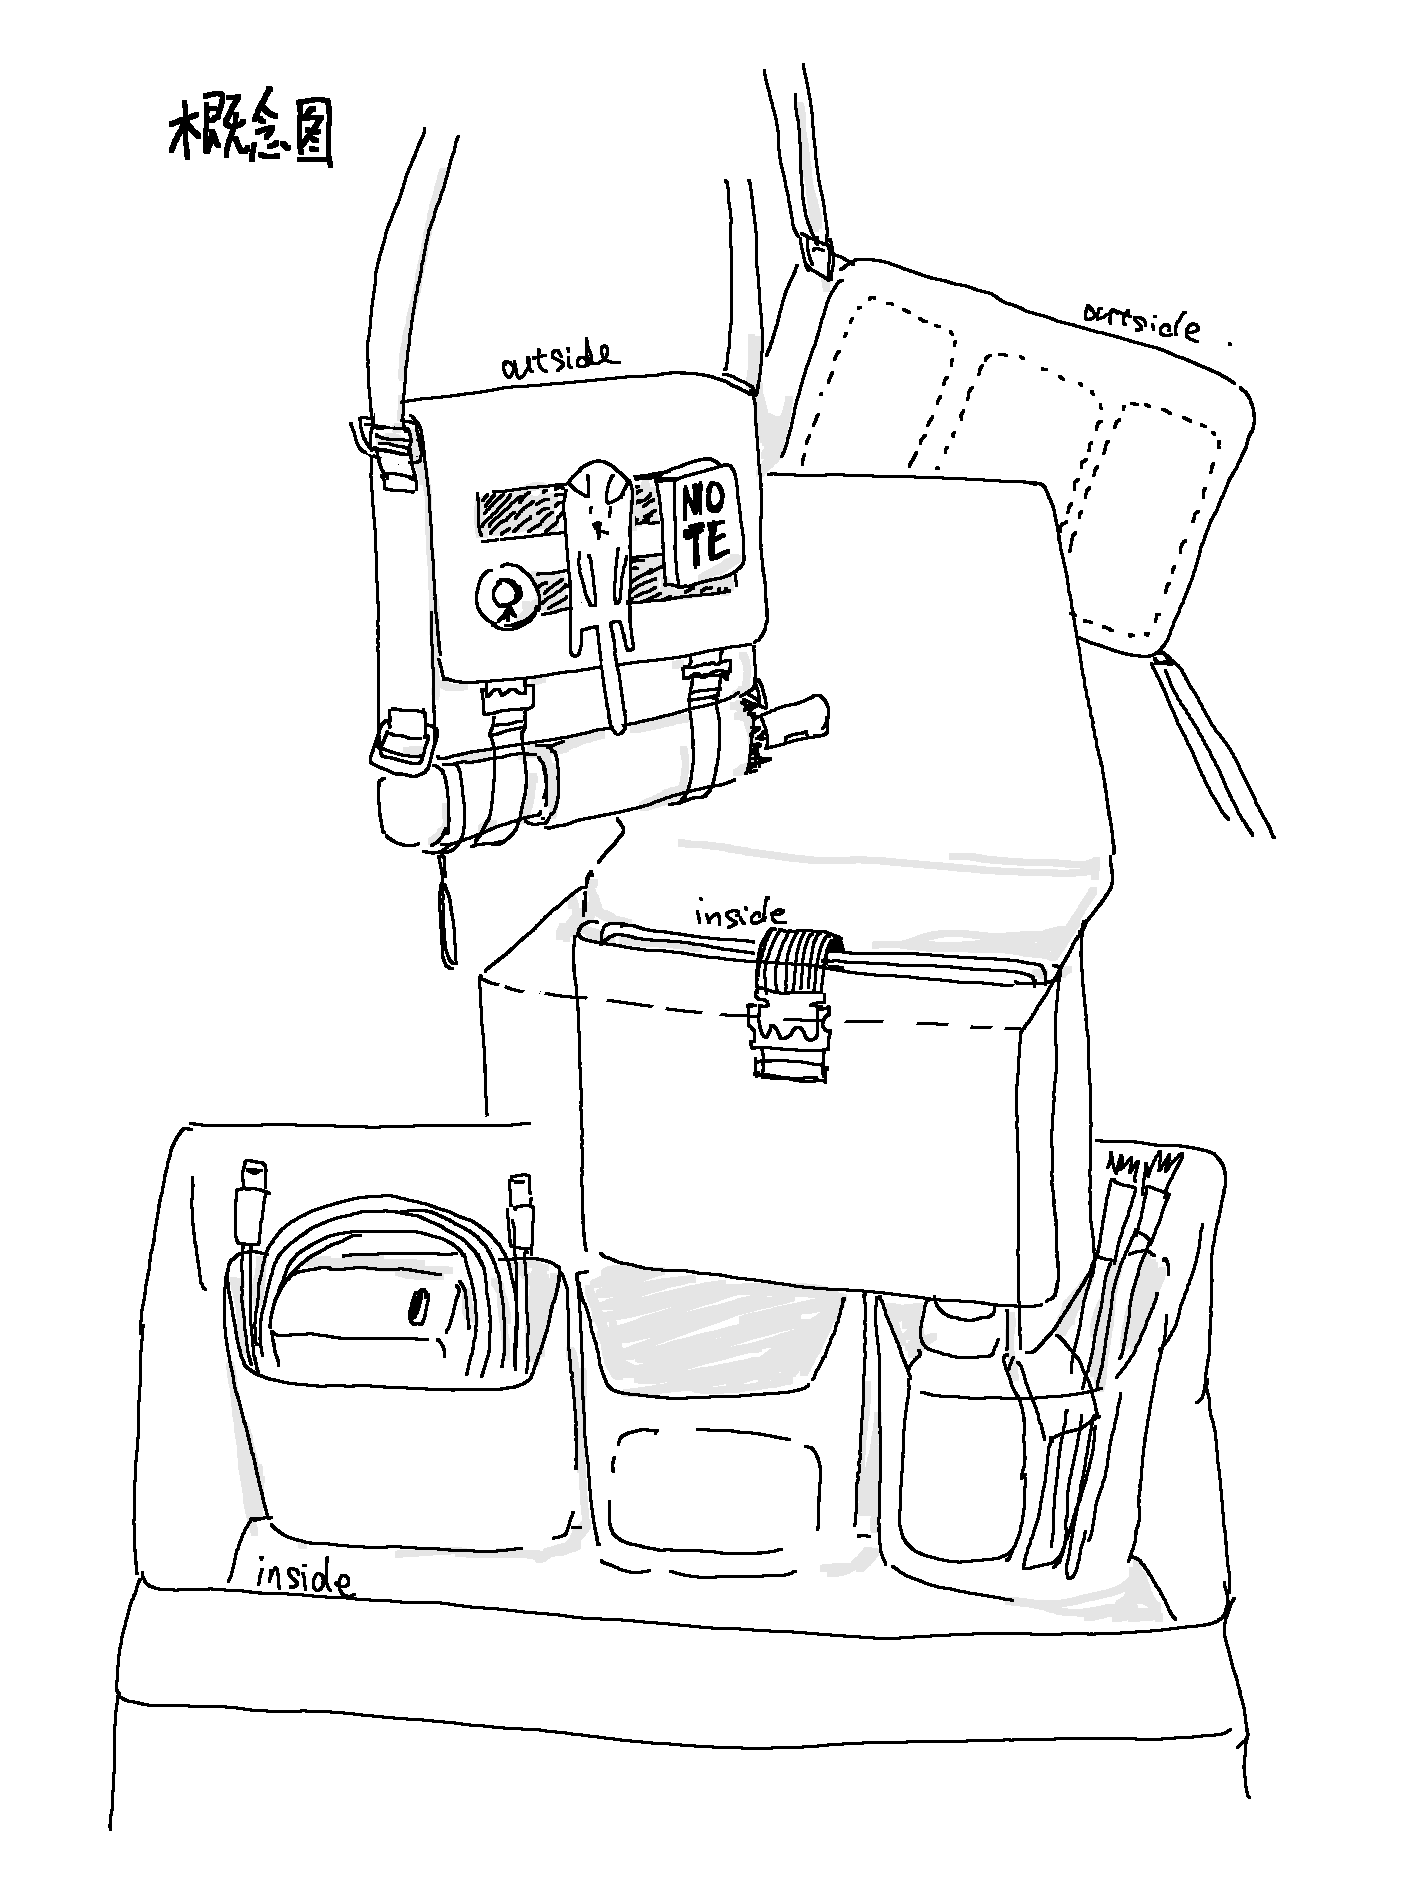 概念图
outside
outside
NO
TE
inside
inside